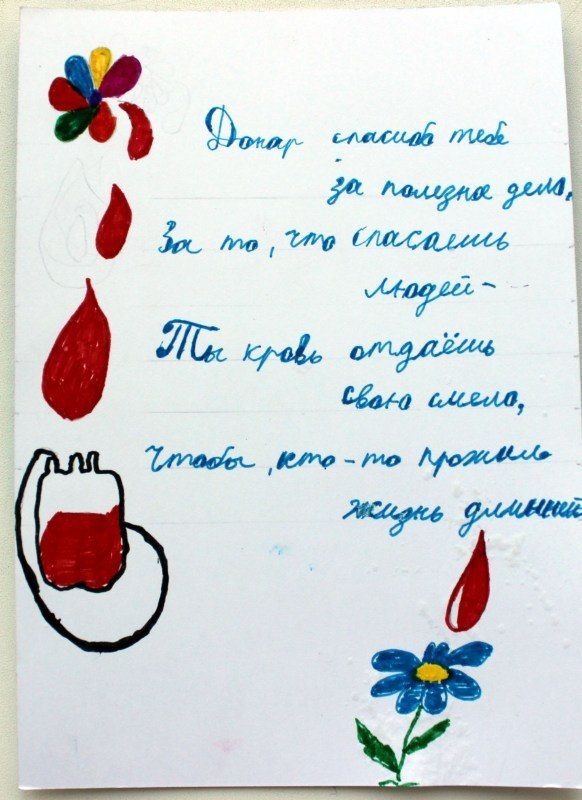 Донар спасибо тебе
за полезное дело,
За то, что спасаешь
людей-
Ты кровь отдаёшь
свою смело,
Чтобы, кто-то прожил
жизнь